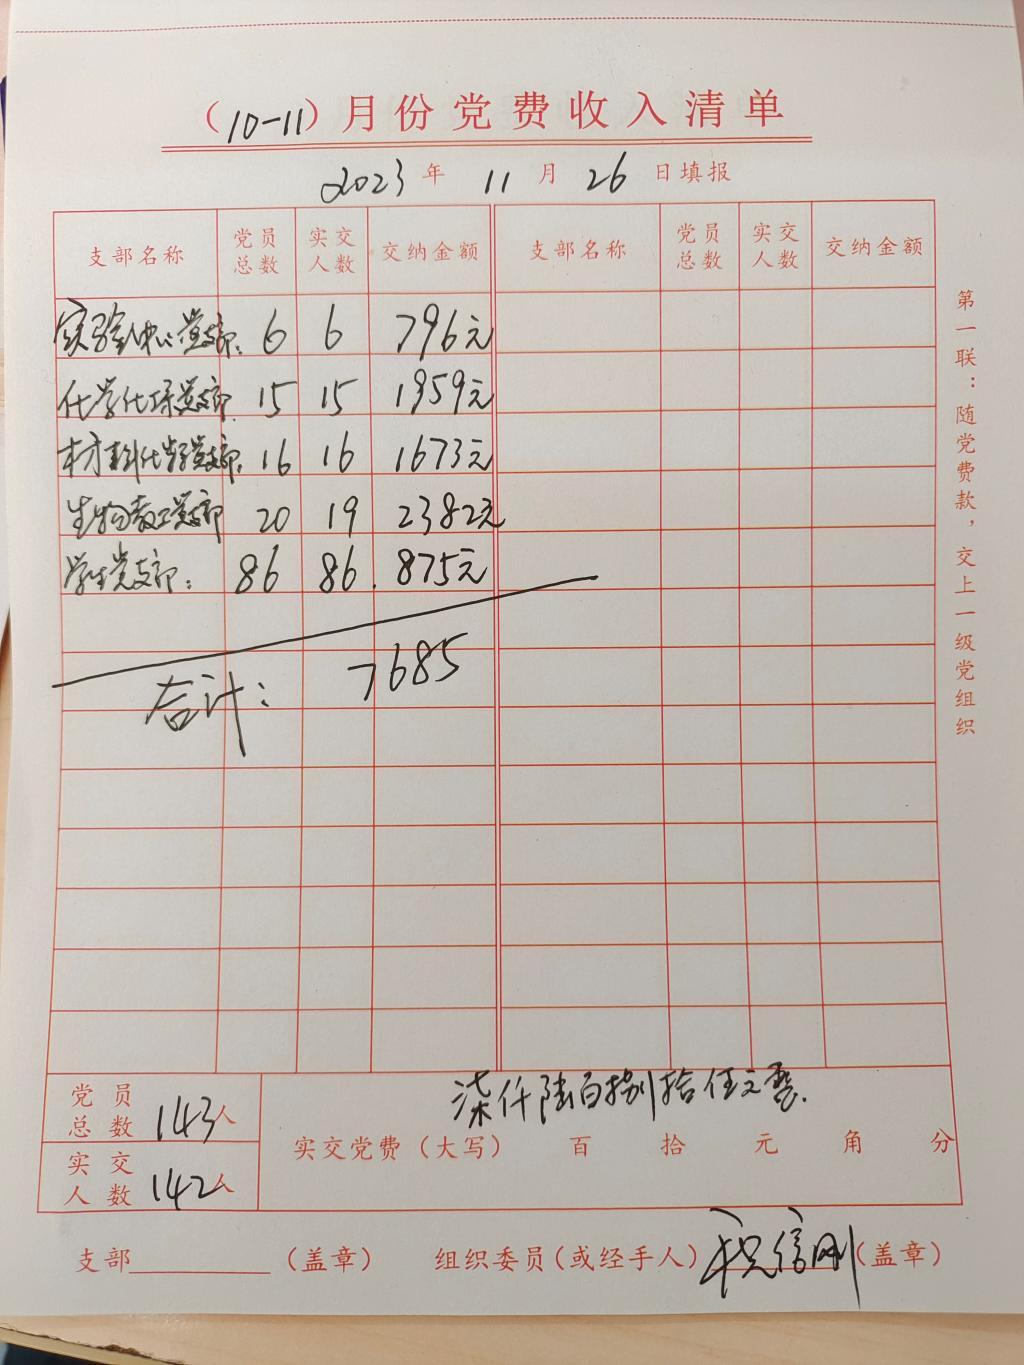 （10-11）月份党费收入清单
2023年 11月 26日填报
支部名称 党员总数 实交人数 交纳金额 支部名称 党员总数 实交人数 交纳金额
实验中心党支部: 6 6 796元
化学化环党支部 15 15 1959元
材料化学党支部: 16 16 1673元
生物教工党支部 20 19 2382元
学生党支部: 86 86 875元
合计: 7685
党员总数 143人
实交人数 142人
柒仟陆百捌拾伍元整.
实交党费（大写） 百 拾 元 角 分
支部（盖章） 组织委员（或经手人）祝信刚（盖章）
第一联：随党费款，交上一级党组织